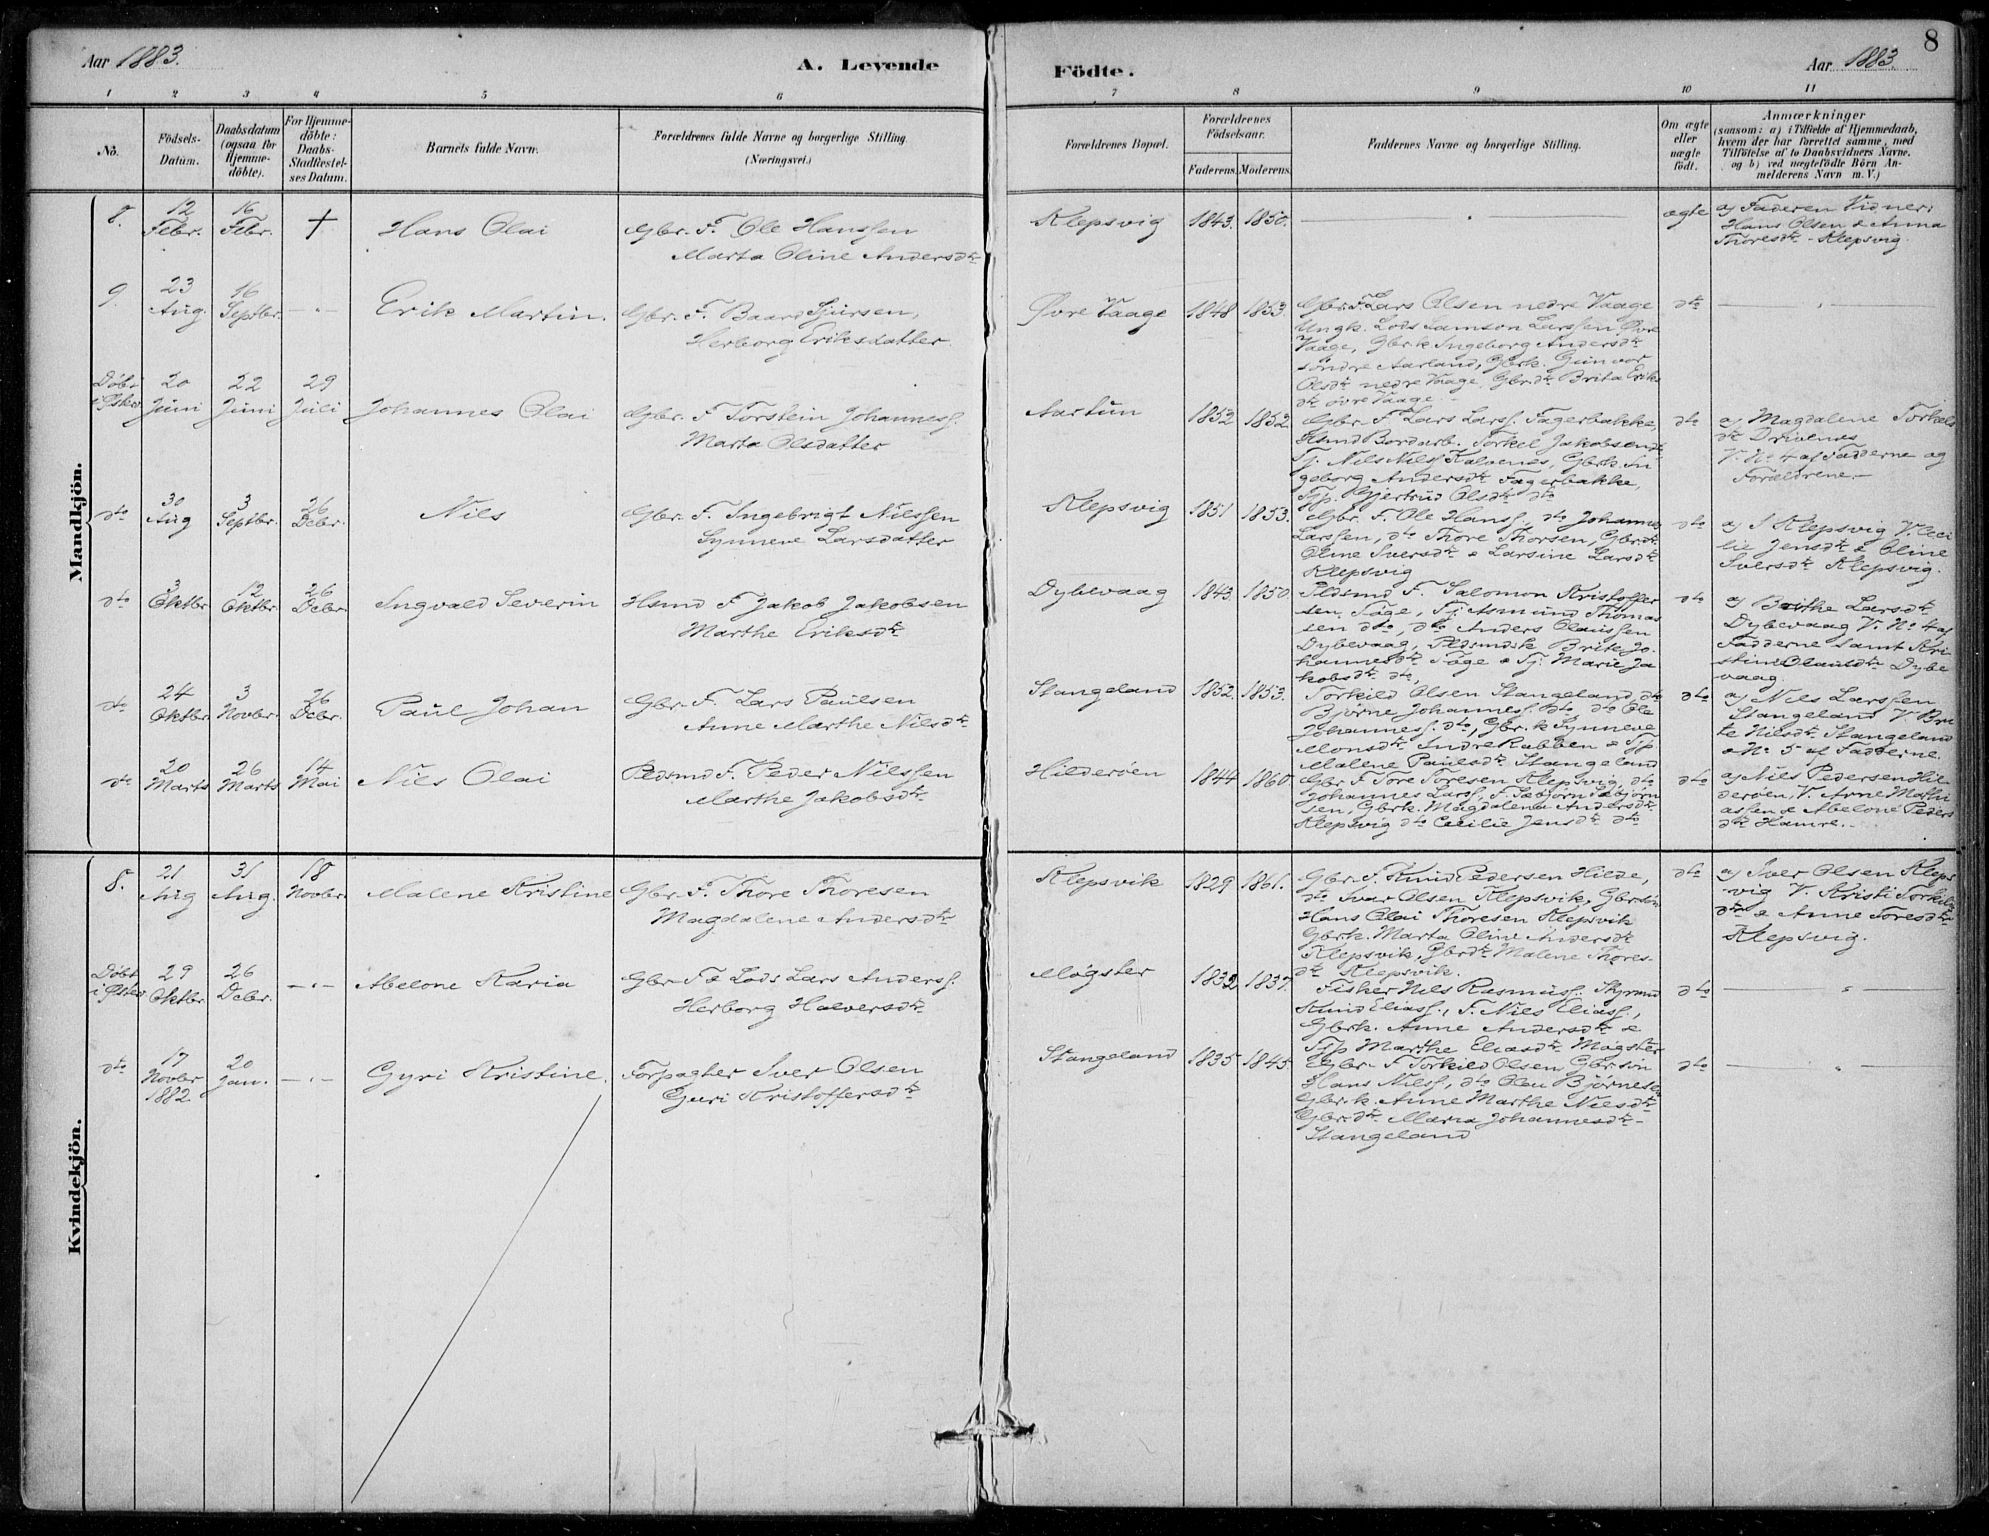 Aar 1883.
A. Levende
Födte.
Aar 1883
8
1 2 3 4 5 6 7 8 9 10 11
No.
Födsels-
Datum.
Daabsdatum
(ogsaa for
Hjemme-
döbte).
For Hjemme-
döbte:
Daabs-
Stadfæstel-
ses Datum.
Barnets fulde Navn.
Forældrenes fulde Navne og borgerlige Stilling.
(Næringsvei.)
Forældrenes Bopæl.
Forældrenes
Födselsaar.
Faderens. Moderens.
Faddernes Navne og borgerlige Stilling.
Om ægte
eller
uægte
födt.
Anmærkninger
(saasom: a) i Tilfælde af Hjemmedaab,
hvem der har forrettet samme, med
Tilföielse af to Daabsvidners Navne,
og b) ved uægtefödte Börn An-
melderens Navn m. V.)
Mandkjön.
8.
12
Febr.
16
Febr.
†
Hans Olai
Gbr. F. Ole Hanssen
Marta Oline Andersdtr
Klepsvig
1843. 1850.
ægte
a) Faderen Vidner:
Hans Olsen & Anna
Thoresdtr - Klepsvig.
9.
23
Aug.
16
Septbr.
Erik Martin.
Gbr. F. Baard Sjursen,
Herborg Eriksdatter.
Øvre Vaage
1848 1853.
Gbr. F. Lars Olsen nedre Vaage
Ungk. Lods Samson Larssen Øvre
Vaage, Gbrk Ingeborg Andersdtr
söndre Aarland, Gbrk. Gunvor
Olsdtr nedre Vaage, Gbrdtr Brita Eriks
dtr övre Vaage.
dto
Döbt
i Østev
20
Juni
22
Juni
29
Juli
Johannes Olai
Gbr. F Torstein Johanness.
Marta Olsdatter
Aartun
1852 1852.
Gbr. F Lars Larss. Fagerbakke,
Hsmd Bordarb. Torkel Jakobsen dto
Tj. Nils Nilss Kalvenes, Gbrk. In-
geborg Andersdtr Fagerbakke,
Tjp. Gjertrud Olsdtr dto
dto
a) Magdalene Torkels
dtr Drivenes
V. No 4 af Fadderne og
Forældrene.
dto
30
Aug
3
Septbr.
26
Debr.
Nils
Gbr. F. Ingebrigt Nilssen
Synneve Larsdatter
Klepsvig
1851 1853.
Gbr. F. Ole Hanss., dto Johannes
Larssen, dto Thore Thorsen, Gbrdtr
Oline Iversdtr & Larsine Larsdtr
Klepsvig
dto
a) S Klepsvig V. Ceci
lie Jensdtr & Oline
Iversdtr Klepsvig.
dto
3
Oktbr
12
Oktbr.
26
Debr.
Ingvald Severin
Hsmd F Jakob Jakobsen
Marthe Eriksdtr
Dybevaag
1843. 1850
Pldsmd F. Salomon Kristoffer
sen Föge, Tj Asmund Thomas
sen dto, dto Anders Olaussen
Dybevaag, Pldsmdsk Brite Jo-
hannesdtr Föge & Tj. Marie Ja
kobsdtr dto,
dto
a) Berthe Larsdtr
Dybevaag V. No 4 af
Fadderne samt Kri
stine Olausdtr Dybe
vaag
dto
24
Oktbr.
3
Novbr.
26
Debr.
Paul Johan
Gbr. F. Lars Paulsen
Anne Marthe Nilsdtr
Stangeland
1852. 1853.
Torkild Olsen Stangeland, dto
Björne Johanness. dto dto Ole
Johanness. dto, Gbr.k Synneve
Monsdtr Indre Rabben & Tjp
Malene Paulsdtr Stangeland
dto
a) Nils Larssen
Stangeland V. Bri
te Nilsdtr Stangeland
& No. 5 af Fadderne.
dto
20
Marts
26
Marts
14
Mai
Nils Olai
Pldsmd F. Peder Nilssen
Marthe Jakobsdtr
Hilderöen
1844 1860.
Gbr. F Tore Toresen Klepsvig, dto
Johannes Larss, F. Sæbjörn Sæbjörn
sen, Gbrk. Magdalena Andersdtr
Klepsvig dto Cecilie Jensdtr dto
dto
a) Nils Pedersen Hil-
deröen, V. Arne Mathi
assen & Abelone Peders
dtr Hamre.
Kvindekjön.
8.
21
Aug
31
Aug.
18
Novbr.
Malene Kristine
Gbr. F. Thore Thoresen
Magdalene Andersdtr
Klepsvik
1829 1861.
Gbr. F. Knud Pedersen Hilde,
dto Ivar Olsen Klepsvik, Gbrsön
Hans Olai Thoresen Klepsvik
Gbrk. Marta Oline Andersdtr
Klepsvik, Gbrdtr Malene Thores-
dtr Klepsvik.
dto
a) Iver Olsen Kleps
vig V. Kristi Torkils
dtr & Anne Toresdtr
Klepsvig.
Döbt
i Østev
29
Oktbr.
26
Debr.
Abelone Karia
Gbr F & Lods Lars Anderss.
Herborg Halversdtr
Mögster
1832, 1837.
Fisker Nils Rasmuss. Skjrmd
Knud Eliass., F. Nils Eliass.,
Gbrk. Anne Andersdtr &
Tjp Marthe Eliasdtr Mögster
dto
dto
17
Novbr
1882
20
Jan.
Gyri Kristine.
Forpagter Iver Olsen
Guri Kristoffersdtr
Stangeland
1835 1845.
Gbr. F Torkild Olsen Gbrsön
Hans Nilss, dto Olai Björnesen
Gbr.k. Anne Marthe Nilsdtr
Gbr.dtr Maria Johannesdtr
Stangeland
dto